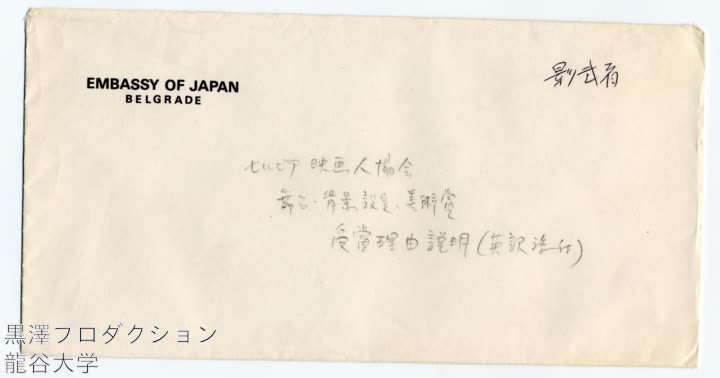 EMBASSY OF JAPAN
BELGRADE
影武者
セルビア映画人協会
舞台・背景設定、美術賞
受賞理由説明(英訳添付)
黒澤プロダクション
龍谷大学